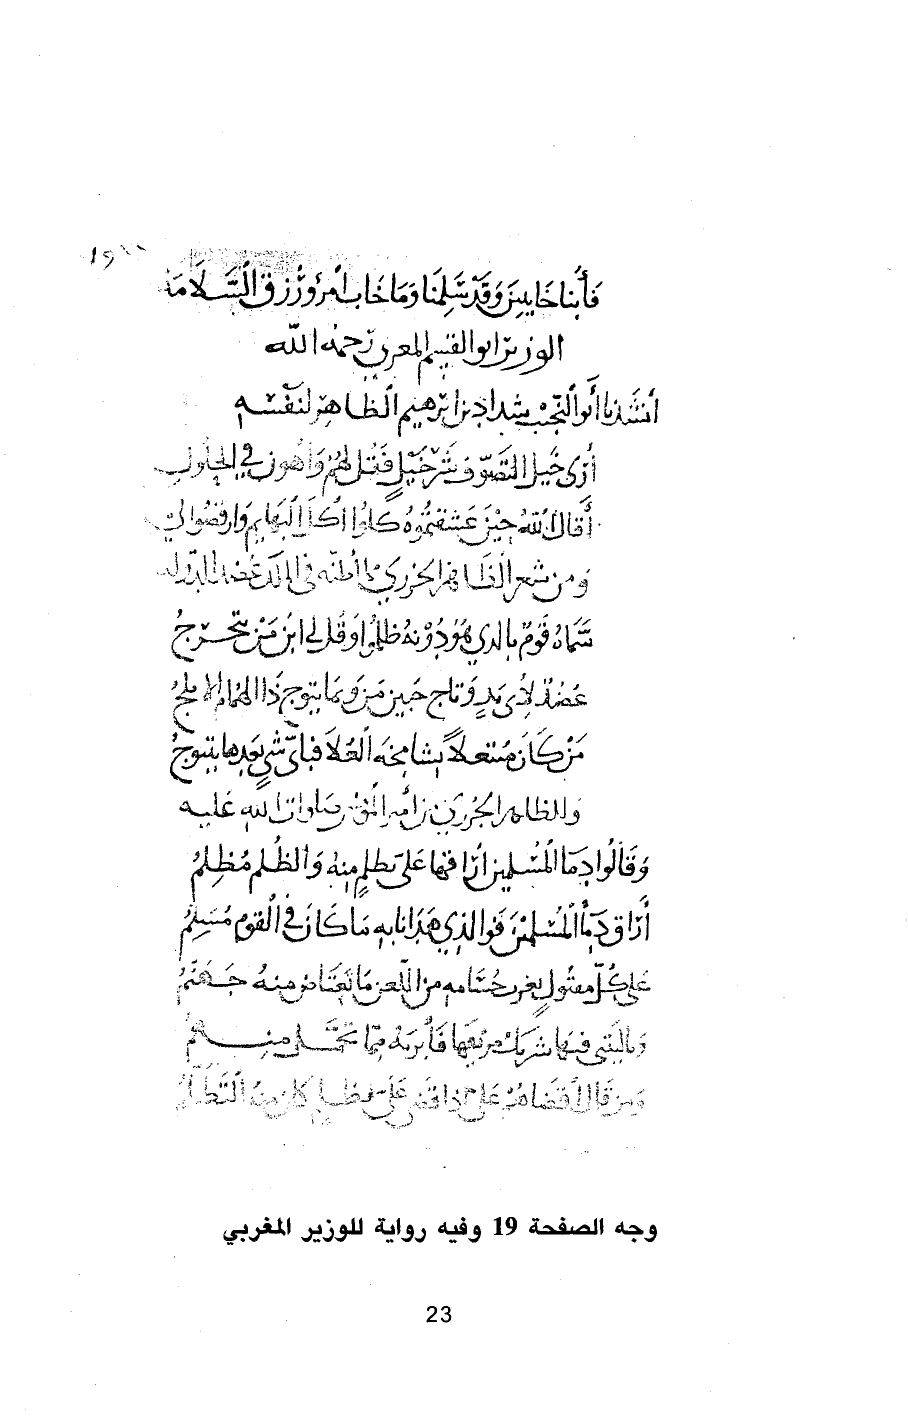 ١٩
فَأُبنا خَايبينَ وَقَدْ سَلِمْنَا وَمَا خَابَ امرؤ رُزِقَ السَّلَامَة
الوزير ابو القسم المغربي رَحمهُ الله
أنشَدَنا أبو النَّجيب شداد بن ابرهيم الظاهر لنفسه
أرَى جيلَ التصَوّف شَرّ جيْلٍ فقُل لهُم وَاهْون في الحلول
أقالَ اللهُ حِيْنَ عَشقتموهُ كلوا أكلَ البَهَايِم وَارقصُوا لي
وَمن شعر الظاهر الجزري في عضد الدوله
سَمّاهُ قَومٌ بالذي هُوَ دُوْنهُ ظلموا وَقُل لي ابنُ مَنْ يتحَرّجُ
عضُدٌ لأي يَدٍ وَتاج جَبين مَن وَبمَا يتوج ذا الهمَام الابلجُ
مَنْ كَانَ مُنتَعلاً بشَامِخَه العُلا فبايّ شي بَعدهَا يتوجُ
وَالظاهر الجزري صلوات الله عَليه
وَقَالُوا دمَا المُسْلمين أرَاقهَا عَلَى تظلمٍ منهُ وَالظُلم مُظلِمُ
أرَاقَ دِمَأ المُسْلمِيْنَ فَوالذي هَدَانا به مَا كانَ في القوم مُسْلِمُ
عَلى كُلّ مقتولٍ من اللعن مَا منهُ جَهَنّمُ
وَياليتَني فيهَا شريك
وجه الصفحة 19 وفيه رواية للوزير المغربي
23